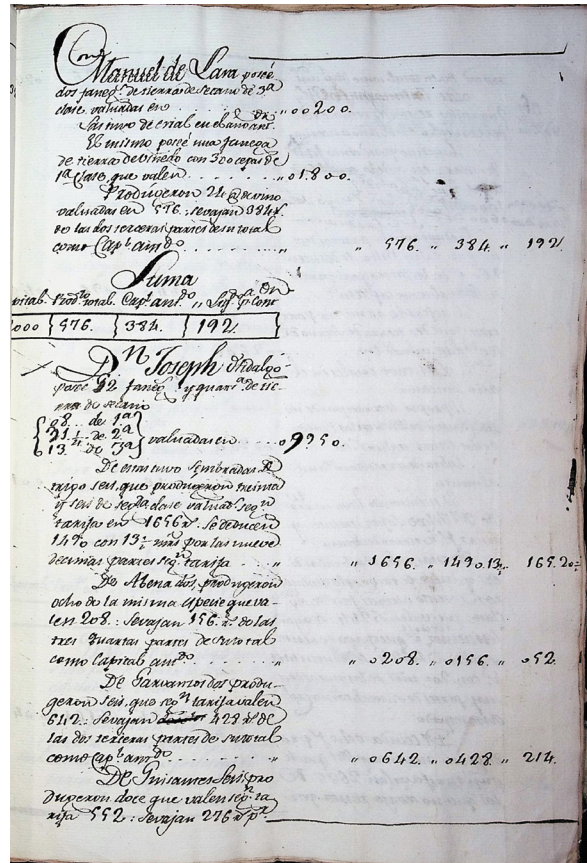 Manuel de Lara poseé
dos faneg.s de tierra de secano de 3ª
clase valuadas en . . . . . . " 00200.
El mismo poseé una fanega
de tierra de viñedo con 300 cepas de
1ª Clase, que valen . . . . . . " 01800.
Produgeron 24 @ de vino
valuadas en 576. : sevajan 384 r.s
de las dos terceras partes de su total
como Cap.l antdo . . . . " " 576. " 384. " 192.
Suma
Prod.to total. Cap.l ant.do
000 } 576. } 384. } 192
D.n Joseph Hidalgo
poseé 92 faneg.s y quar.a de tie-
rra de secano
8.. de 1ª
de 2ª
13. de 3ª } valuadas en . . . . 09350.
De estas tuvo sembradas de
trigo seis, que produgeron treinta
y seis de seg.da clase valuad.s seg.n
tarifa en 1656 r.s Se deducen
1490 con 13 mrs por las nueve
decimas partes seg.n tarifa . . . " " 1656. " 1490.13 " 165.20
De Abena dos, produgeron
ocho de la misma especie que va-
len 208. : Sevajan 156. r.s de las
tres quartas partes de su total
como Capital ant.do . . . . " " 0208. " 0156. " 052
De Garvanzos dos produ-
geron seis, que seg.n tarifa valen
642. : Sevajan 428 r.s de
las dos terceras partes de su total
como Cap.l antdo . . . . . " " 0642. " 0428. " 214.
De Guisantes seis pro
dugeron doce que valen seg.n ta
rifa 552 : Sevajan 276 r.s p.r